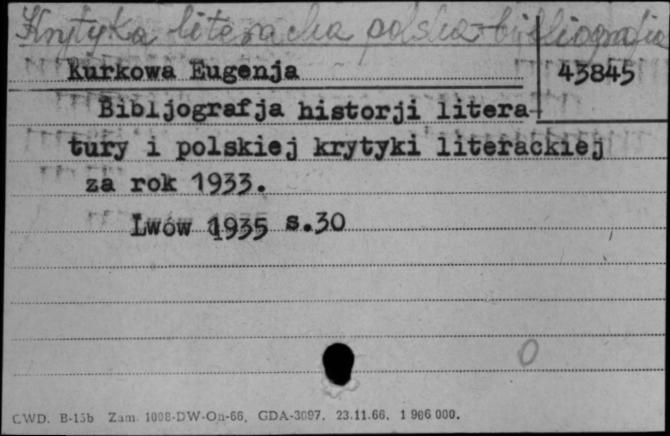 Krytyka literacka polska-bibliografia
Kurkowa Eugenja 43845
Bibljografja historji litera-
tury i polskiej krytyki literackiej
za rok 1933.
Lwów 1935 s.30
0
CWD. B-15b Zam. 1008-DW-On-66, GDA-3097. 23.11.66. 1 906 000.